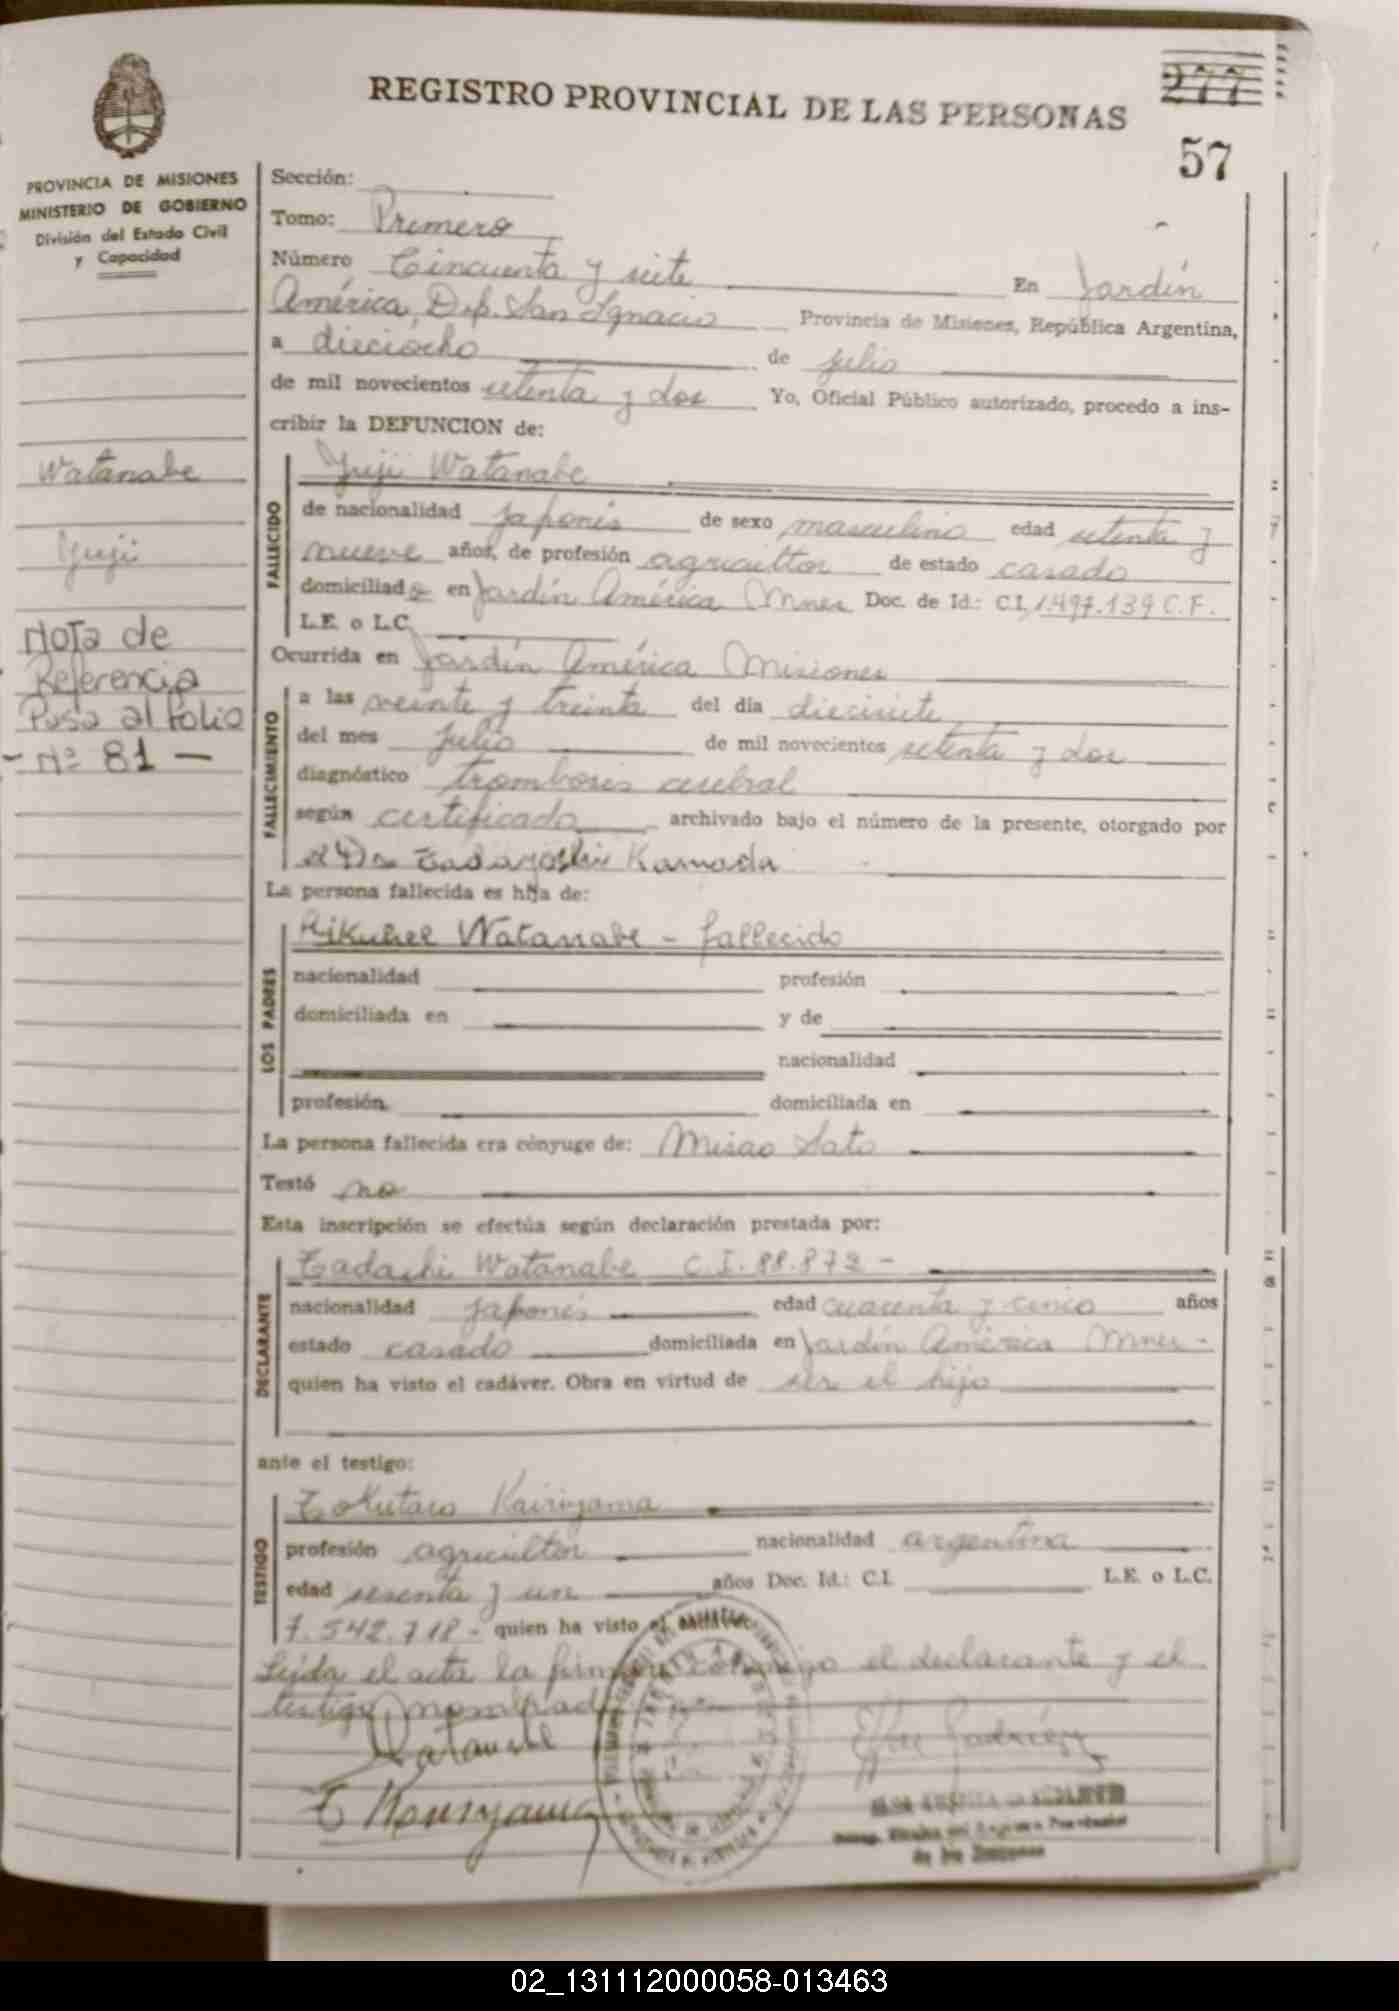 REGISTRO PROVINCIAL DE LAS PERSONAS
277
57
PROVINCIA DE MISIONES
MINISTERIO DE GOBIERNO
División del Estado Civil
y Capacidad
Watanabe
Yuji
Nota de
Referencia
Pasa al folio
- Nº 81 -
Sección:
Tomo: Primero
Número Cincuenta y siete En Jardín
América, Dep. San Ignacio Provincia de Misiones, República Argentina,
a dieciocho de julio
de mil novecientos setenta y dos Yo, Oficial Público autorizado, procedo a ins-
cribir la DEFUNCION de:
FALLECIDO
Yuji Watanabe
de nacionalidad japonés de sexo masculino edad setenta y
nueve años, de profesión agricultor de estado casado
domiciliado en Jardín América Mnes Doc. de Id.: C.I. 1.497.139 C.F.
L.E. o L.C.
Ocurrida en Jardín América Misiones
FALLECIMIENTO
a las veinte y treinta del día diecisiete
del mes julio de mil novecientos setenta y dos
diagnóstico trombosis cerebral
según certificado archivado bajo el número de la presente, otorgado por
el Dr Tadayoshi Kamada
La persona fallecida es hija de:
LOS PADRES
Watanabe - fallecido
nacionalidad profesión
domiciliada en y de
nacionalidad
profesión domiciliada en
La persona fallecida era cónyuge de: Misao Sato
Testó no
Esta inscripción se efectúa según declaración prestada por:
DECLARANTE
Tadashi Watanabe C.I. 88.872 -
nacionalidad japonés edad cuarenta y cinco años
estado casado domiciliada en Jardín América Mnes -
quien ha visto el cadáver. Obra en virtud de ser el hijo
ante el testigo:
TESTIGO
Tokutaro Kairiyama
profesión agricultor nacionalidad argentina
edad sesenta y un años Doc. Id.: C.I. L.E. o L.C.
7.542.718 - quien ha visto el cadáver.
Leída el acta la firman conmigo el declarante y el
testigo nombrado
Watanabe
de las Personas
02_131112000058-013463